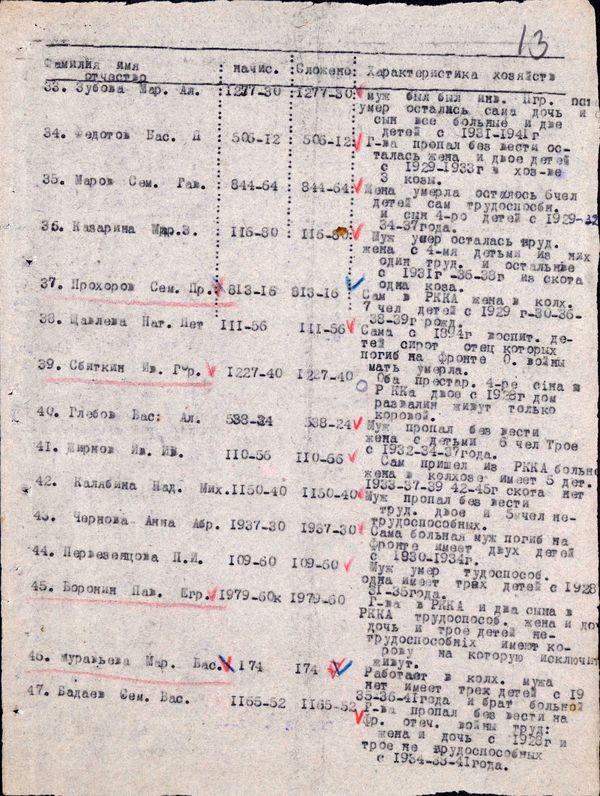 13
Фамилия имя отчество начис. Сложено Характеристика хозяйств
33. Зубова Мар. Ал. I277-30 I277-30 муж был был инв. Пгр.
умер остались сама дочь и
сын все больные и две
детей с 1931-1941г
34. Федотов Вас. П 506-I2 506-I2 Г-ва пропал без вести ос-
талась жена и двое детей
с 1929-1933г в хоз-ве
3 козы.
35. Маров Сем. Гав. 844-64 844-64 Жена умерла осталось 6чел
детей сам трудоспосбн.
и сын 4-ро детей с 1929-32
34-37года.
36. Казарина Мар.З. II6-80 II6-80 Муж умер осталась нруд.
жена с 4-мя детьми из них
один труд. и остальные
с 1931г -36-38г из скота
одна коза.
37. Прохоров Сем. Пр. 813-I6 813-I6 Сам в РККА жена в колх.
7 чел детей с 1929 г-30-36-
38-39г рожд.
38. Щавлева Нат. Пет III-56 III-56 Сама с 1894г воспит. де-
тей сирот отец которых
погиб на фронте О. войны
мать умерла.
39. Сбиткин Ив. Гр. I227-40 I227-40 Оба престар. 4-ре сіна в
Р ККа двое с 1928г дом
развалин живут только
коровой.
40. Глебов Вас: Ал. 538-24 538-24 Муж пропал без вести
жена с детьми 6 чел Трое
с 1932-34-37года.
41. Жирнов Ив. Ив. II0-56 II0-56 Сам пришел из РККА больн
жена в колхозе имеет 5 дет.
1933-37-39 42-45г скота нет
42. Калябина Над. Мих. II50-40 II50-40 Муж пропал без вести
труд. двое и 5чел не-
трудоспособных.
43. Чернова Анна Абр. I937-30 I937-30 Сама больная муж погиб на
Фронте имеет двух детей
с 1930-1934г.
44. Первезенцова П.И. I09-60 I09-60 Муж умер тудоспособ.
одна имеет трех детей с 1928
31-35года.
45. Воронин Пав. Егр. I979-60к I979-60 Г-ва в РККА и два сына в
РККА трудоспособ. жена и до
дочь и трое детей не-
трудоспособніх имеют ко-
рову на которую исключит
живут.
46. Муравьева Мар. Вас. I74 I74 Работает в колх. мужа
нет имеет трех детей с 19
35-36-41года и брат больной
47. Бадаев Сем. Вас. II65-52 II65-52 Г-ва пропал без вести на
фр. отеч. войны труд:
жена и дочь с 1928г и
трое не трудоспособных
с 1934-38-41года.